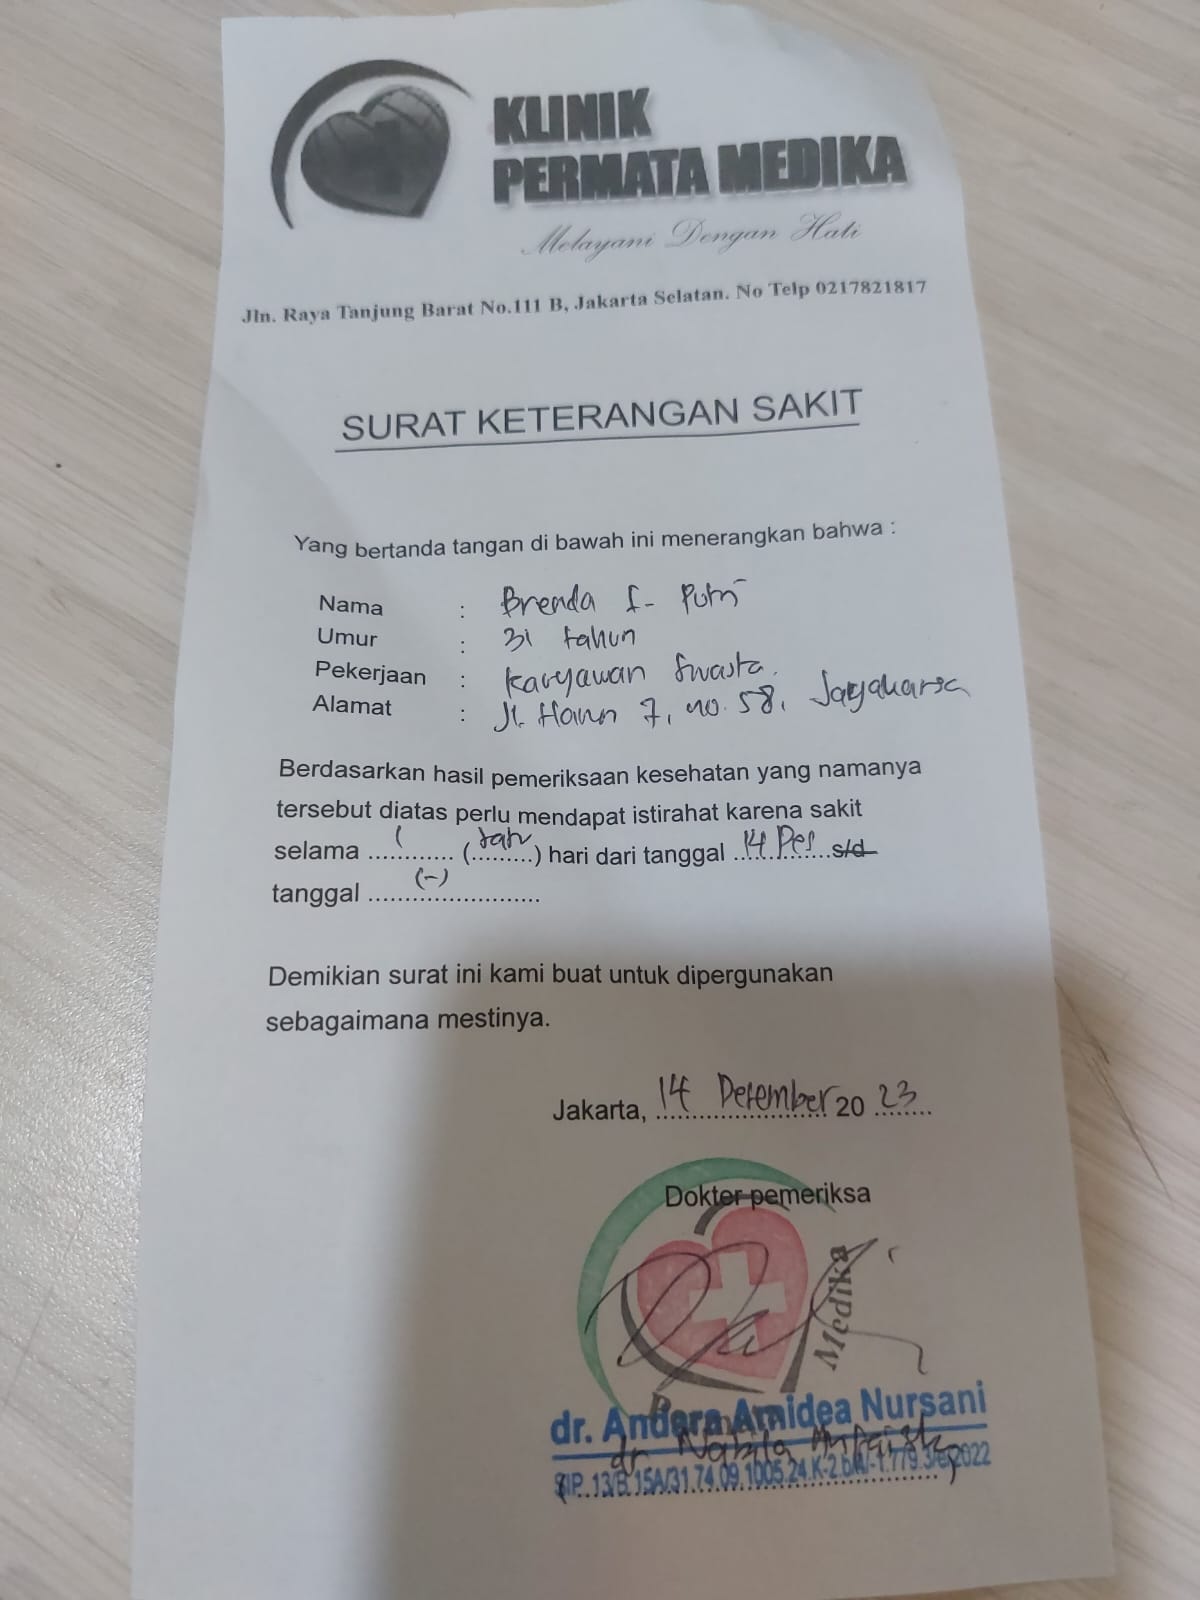 KLINIK
PERMATA MEDIKA
Melayani Dengan Hati
Jln. Raya Tanjung Barat No.111 B, Jakarta Selatan. No Telp 0217821817
SURAT KETERANGAN SAKIT
Yang bertanda tangan di bawah ini menerangkan bahwa :
Nama : Brenda I- Putri
Umur : 31 tahun
Pekerjaan : karyawan swasta.
Alamat : Jl. 7, no. 58, Jagakarsa
Berdasarkan hasil pemeriksaan kesehatan yang namanya
tersebut diatas perlu mendapat istirahat karena sakit
selama ...1... (satu) hari dari tanggal 14 Des s/d
tanggal (-)
Demikian surat ini kami buat untuk dipergunakan
sebagaimana mestinya.
Jakarta, 14 Desember 20 23
Dokter pemeriksa
Medika
dr. Andara Amidea Nursani
dr Nabila